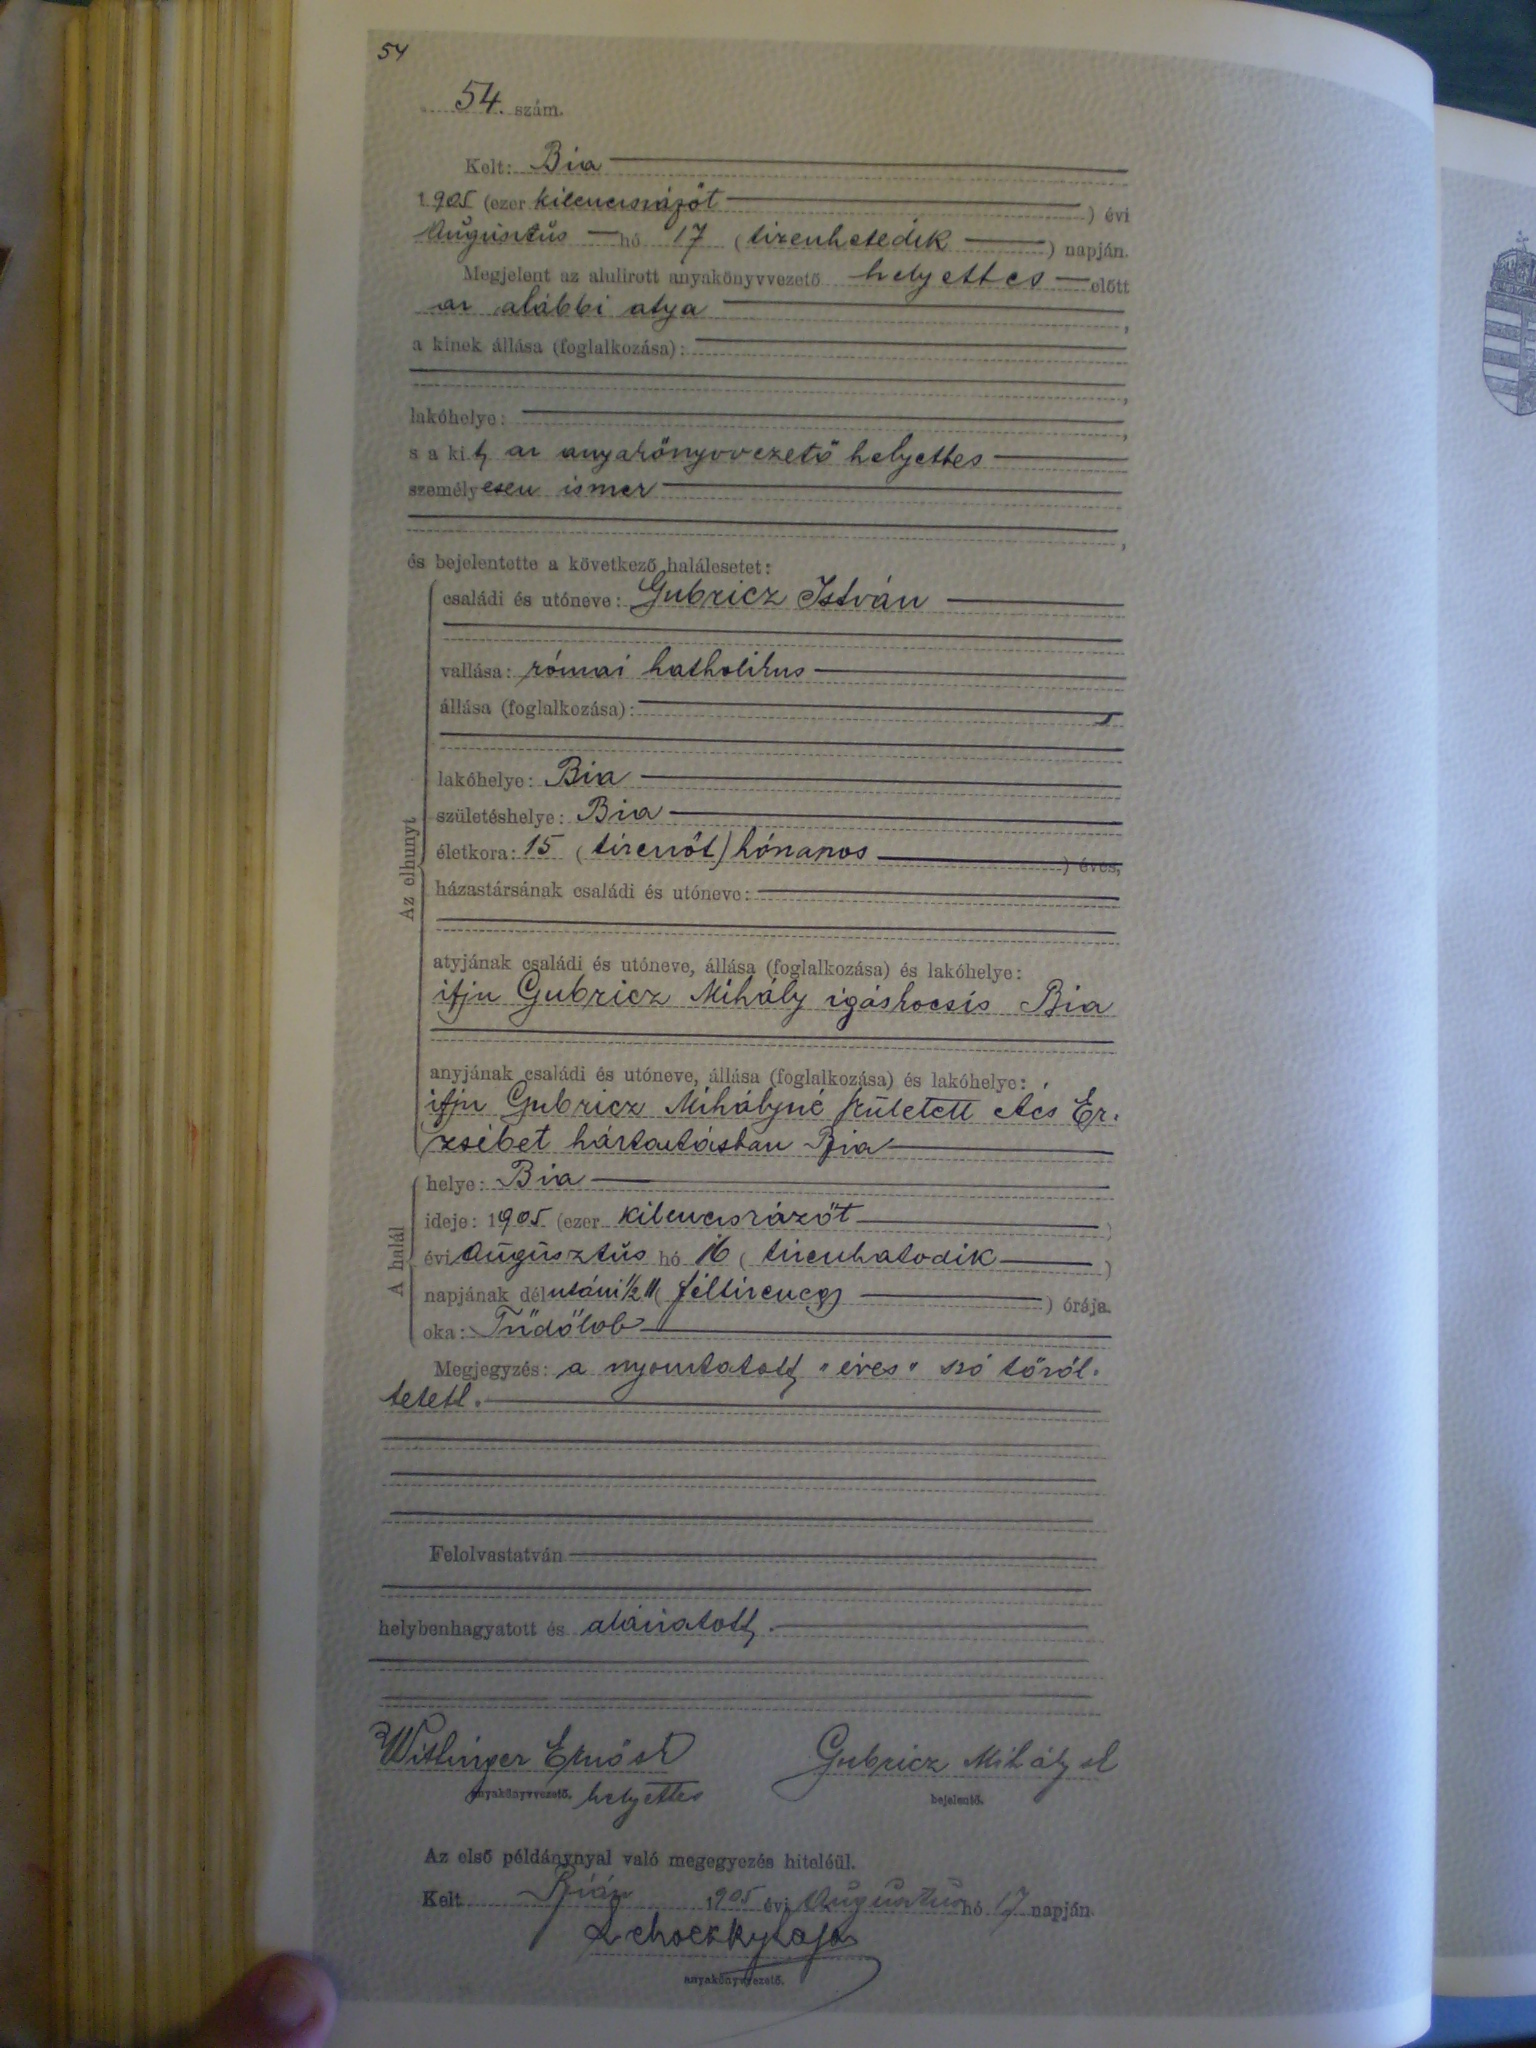 54
54. szám.
Kelt: Bia
1905 (ezer kilencszázöt ) évi
Augusztus hó 17 (tizenhetedik ) napján.
Megjelent az alulirott anyakönyvvezető helyettes előtt
az alábbi atya ,
a kinek állása (foglalkozása):
,
lakóhelye: ,
s a kit az anyakönyvvezető helyettes
személyesen ismer
,
és bejelentette a következő halálesetet:
Az elhunyt
családi és utóneve: Gubricz István
vallása: római katholikus
állása (foglalkozása):
lakóhelye: Bia
születéshelye: Bia
életkora: 15 (tizenöt) hónapos ) éves,
házastársának családi és utóneve:
atyjának családi és utóneve, állása (foglalkozása) és lakóhelye:
ifju Gubricz Mihály igáskocsis Bia
anyjának családi és utóneve, állása (foglalkozása) és lakóhelye:
ifju Gubricz Mihályné született Ács Er-
zsébet háztartásban Bia
A halál
helye: Bia
ideje: 1905 (ezer kilencszázöt )
évi Augusztus hó 16 (tizenhatodik )
napjának délutáni ½ 11 (féltizenegy ) órája.
oka: Tüdőlob
Megjegyzés: a nyomtatott "éves" szó töröl-
tetett.
Felolvastatván
helybenhagyatott és aláiratott.
Ernőst Gubricz Mihály
anyakönyvvezető. helyettes bejelentő.
Az első példánynyal való megegyezés hiteléül.
Kelt Bián 1905 évi Augusztus hó 17 napján.
anyakönyvvezető.